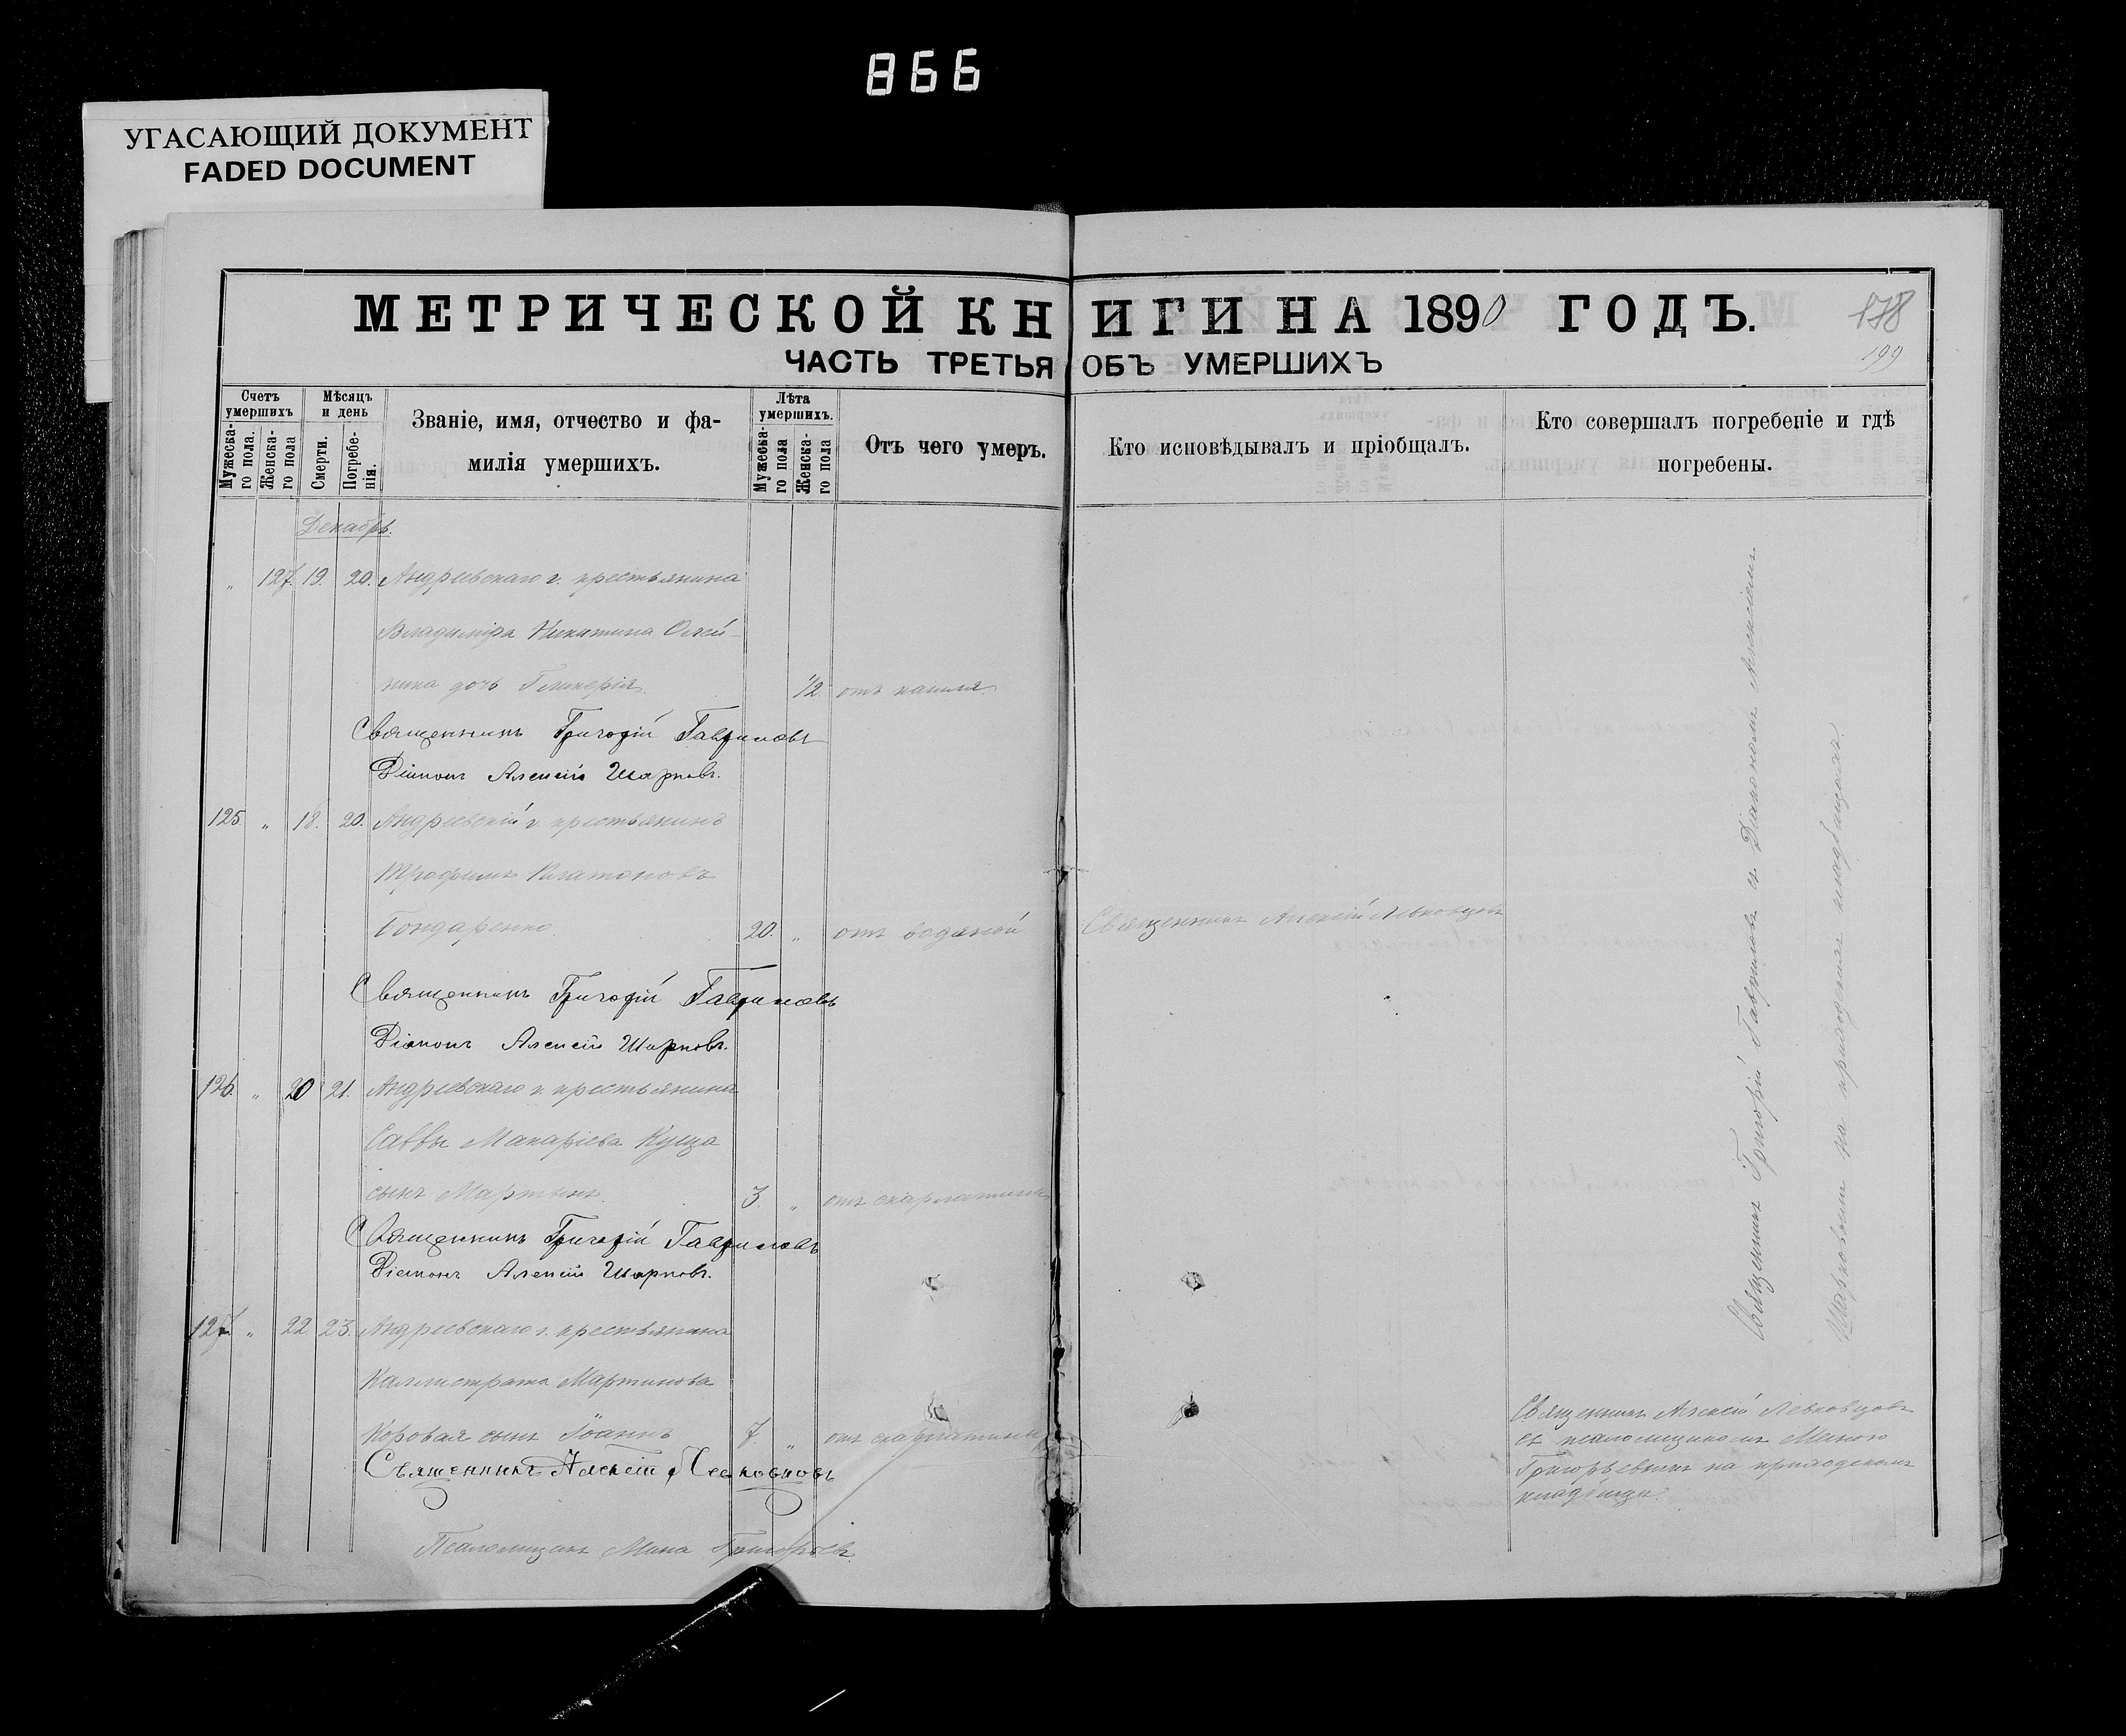 866
УГАСАЮЩИЙ ДОКУМЕНТ
FADED DOCUMENT
МЕТРИЧЕСКОЙ КНИГИ НА 1890 ГОДЪ.
178
199
ЧАСТЬ ТРЕТЬЯ ОБЪ УМЕРШИХЪ
Счетъ умершихъ
Мужеска-го пола.
Женска-го пола
Мѣсяцъ и день
Смерти.
Погребе-нія.
Званіе, имя, отчество и фа-
милія умершихъ.
Лѣта умершихъ.
Мужеска-го пола
Женска-го пола
Отъ чего умеръ.
Кто исповѣдывалъ и пріобщалъ.
Кто совершалъ погребеніе и гдѣ
погребены.
Декабрь.
" 127. 19. 20. Андреевскаго г. крестьянина
Владиміра Никитина Олей-
ника дочь Гликерія. 1/2 отъ кашля
Священникъ Григорій Гавриловъ
Діаконъ Алексій Шарковъ.
125 " 18. 20. Андреевскій г. крестьянинъ
Трофимъ Платоновъ
Бондаренко. 20. " отъ водяной Священникъ Алексій Левковцовъ
Священникъ Григорій Гавриловъ
Діаконъ Алексій Шарковъ.
126. " 20 21. Андреевскаго г. крестьянина
Саввы Макаріева Куща
сынъ Мартинъ. 3. " отъ скарлатины
Священникъ Григорій Гавриловъ
Діаконъ Алексій Шарковъ.
127 " 22 23. Андреевскаго г. крестьянина
Каллистрата Мартинова
Коровая сынъ Іоаннъ 7. " отъ скарлатины
Священникъ Алексій Левковцовъ
Псаломщикъ Мина Григорьевъ
Священникъ Григорій Гавриловъ съ Діакономъ Алексіемъ
Шарковымъ на приходскомъ кладбищѣ.
Священникъ Алексій Левковцовъ
съ псаломщикомъ Миною
Григорьевымъ на приходскомъ
кладбищѣ.